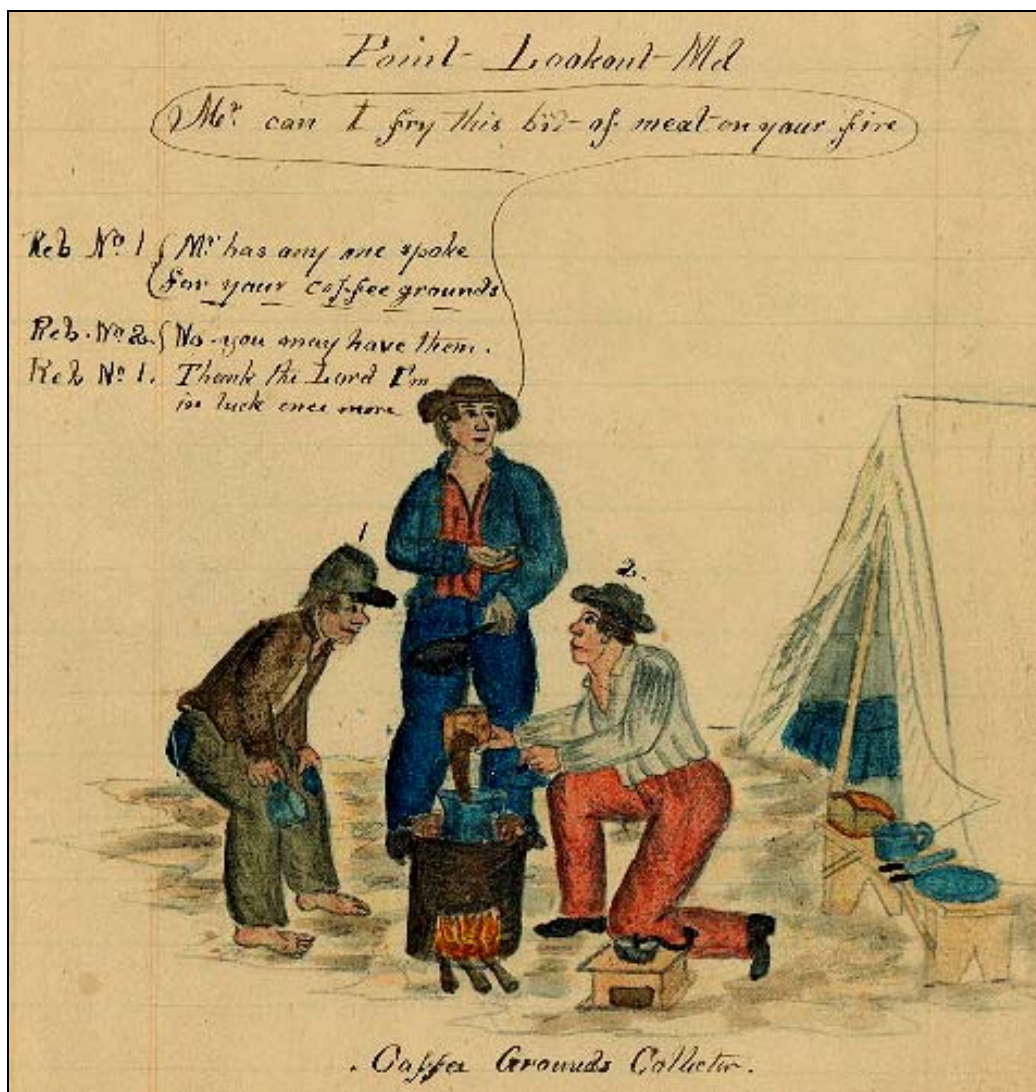 9
Point Lookout Md
Mr. can I fry this bit of meat on your fire
Reb No. 1 { Mr has any one spoke
for your coffee grounds
Reb. No 2. { No you may have them.
Reb No 1. Thank the Lord I'm
in luck once more
1
2.
. Coffee Grounds Collector.